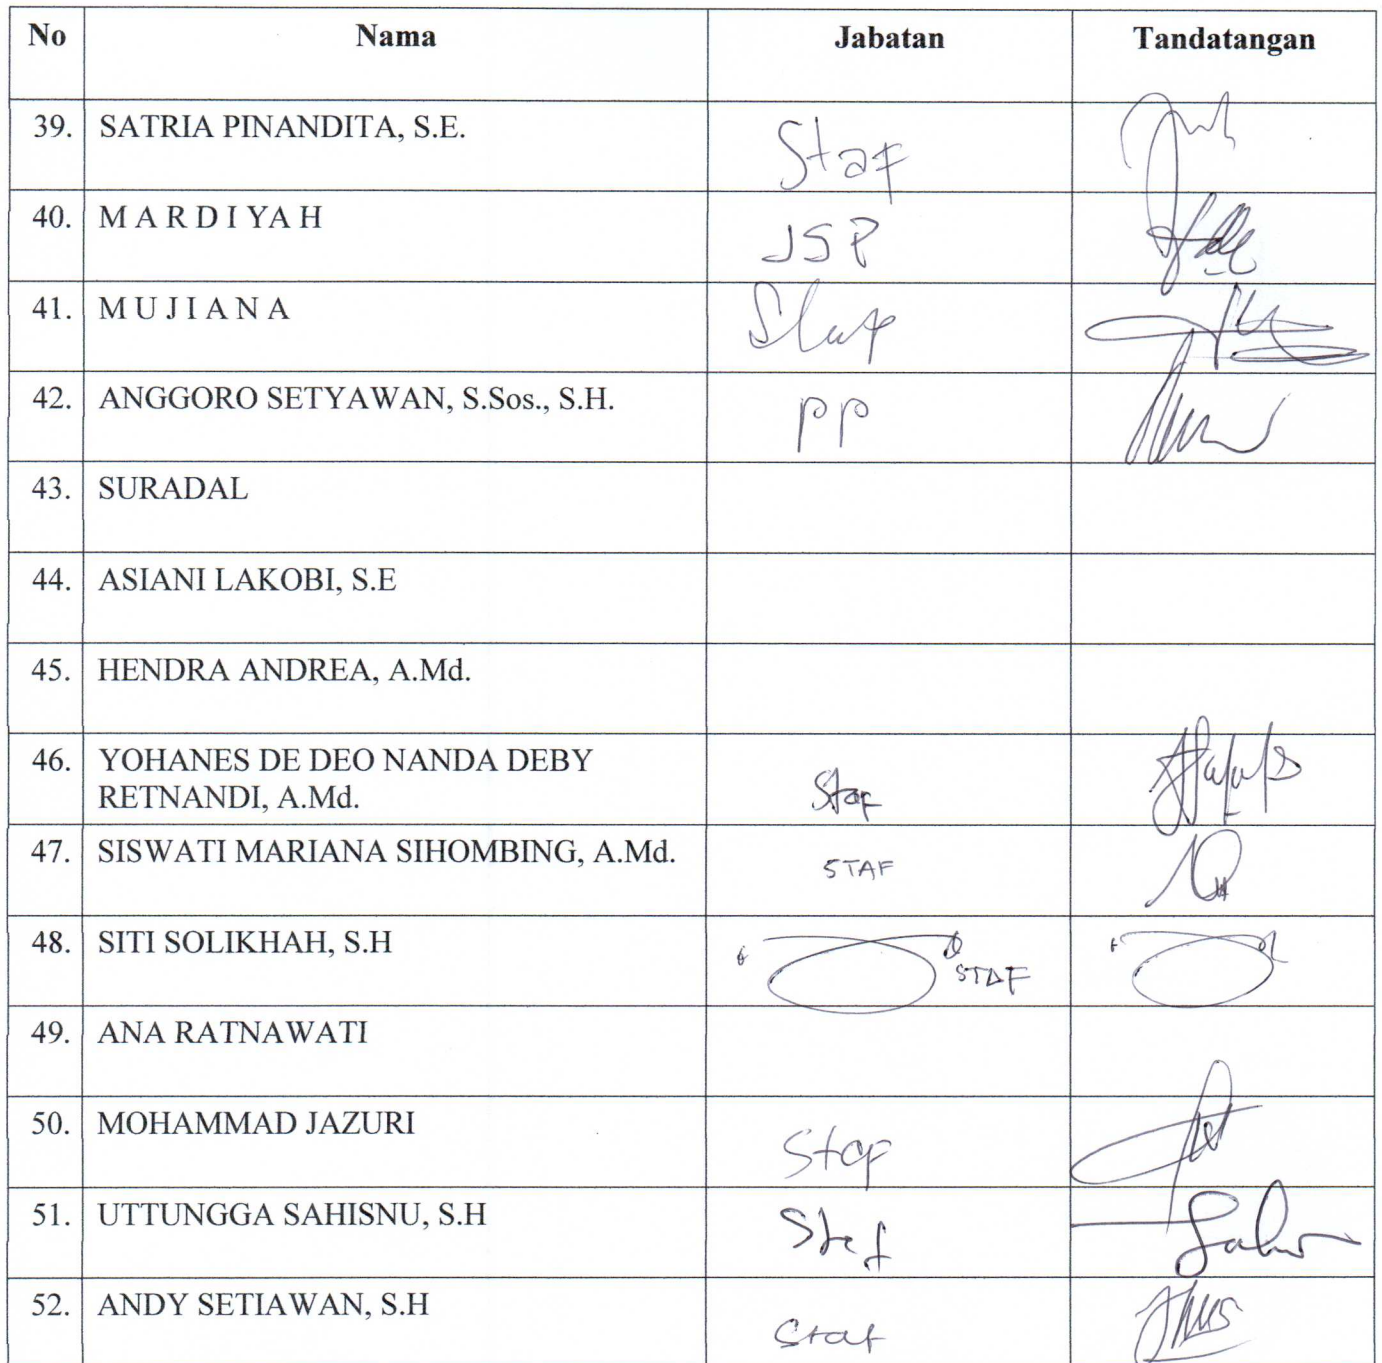 No Nama Jabatan Tandatangan
39. SATRIA PINANDITA, S.E. Staf
40. M A R D I YA H JSP
41. M U J I A N A Staf
42. ANGGORO SETYAWAN, S.Sos., S.H. PP
43. SURADAL
44. ASIANI LAKOBI, S.E
45. HENDRA ANDREA, A.Md.
46. YOHANES DE DEO NANDA DEBY
RETNANDI, A.Md. Staf
47. SISWATI MARIANA SIHOMBING, A.Md. STAF
48. SITI SOLIKHAH, S.H STAF
49. ANA RATNAWATI
50. MOHAMMAD JAZURI Staf
51. UTTUNGGA SAHISNU, S.H Staf
52. ANDY SETIAWAN, S.H Staf